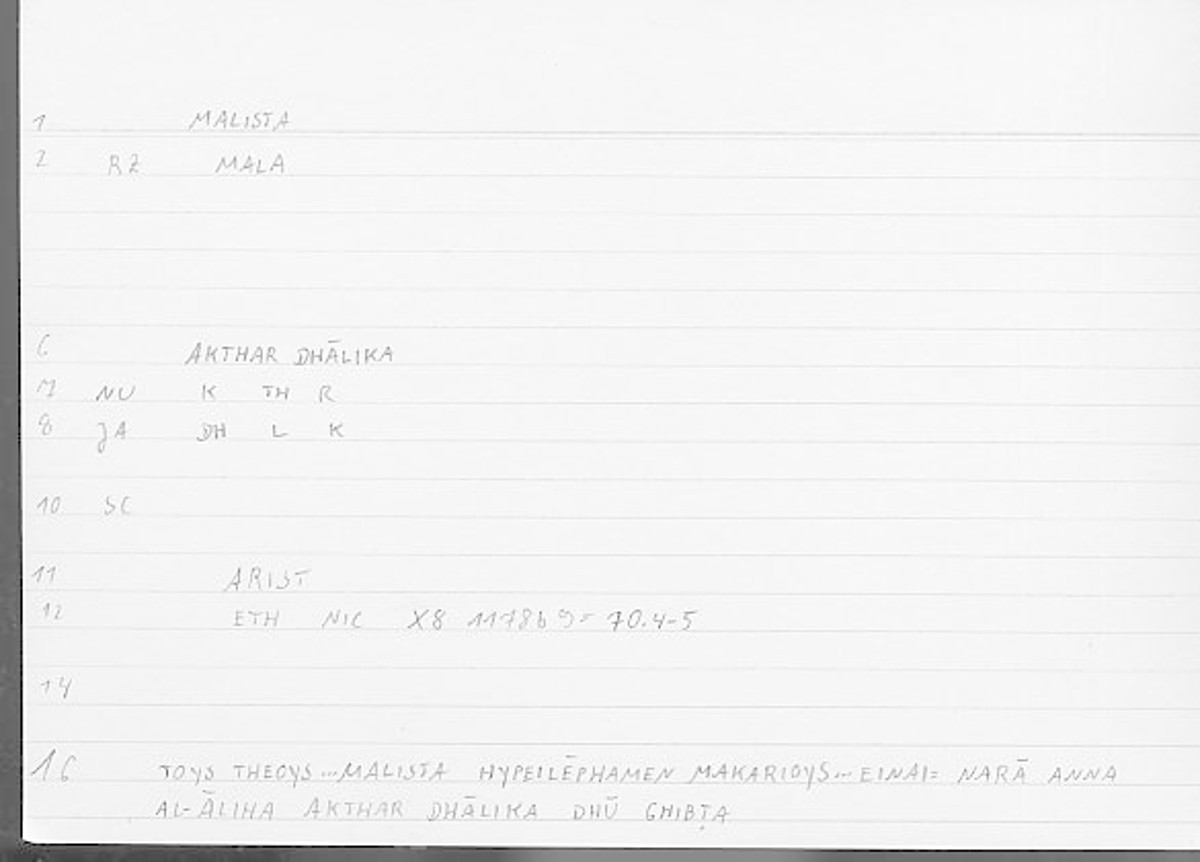 1 MALISTA
2 RZ MALA
6 AKTHAR DHĀLIKA
7 NU K TH R
8 JA DH L K
10 SC
11 ARIST
12 ETH NIC X8 1178b 9= 70.4-5
14
16 TOYS THEOYS...MALISTA HYPEILĒPHAMEN MAKARIOYS...EINAI= NARĀ ANNA
AL-ĀLIHA AKTHAR DHĀLIKA DHŪ GHIBṬA